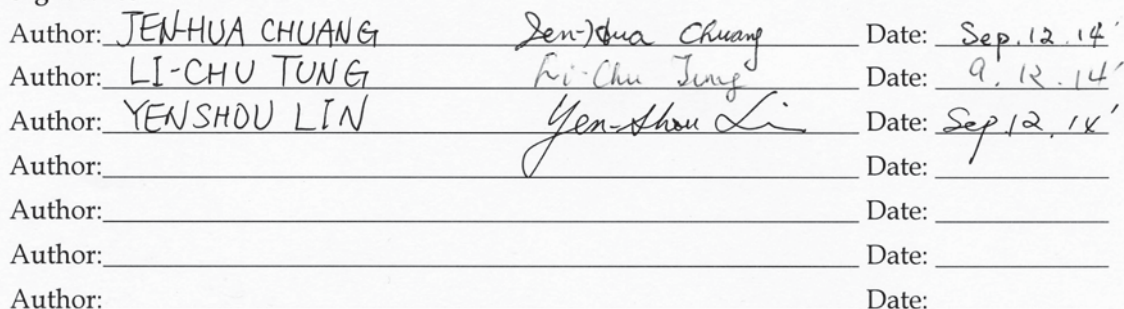 Author: JEN-HUA CHUANG Jen-Hua Chuang Date: Sep. 12. 14'
Author: LI-CHU TUNG Li-Chu Tung Date: 9. 12. 14'
Author: YENSHOU LIN Yen-Shou Lin Date: Sep. 12. 14'
Author: Date:
Author: Date:
Author: Date:
Author: Date: